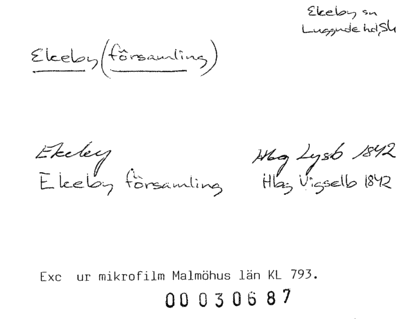 Ekeby sn
Luggude hd, Sk
Ekeby (församling)
Ekeby Hbg Lysb 1842
Ekeby församling Hbg Vigselb 1842
Exc ur mikrofilm Malmöhus län KL 793.
00030687